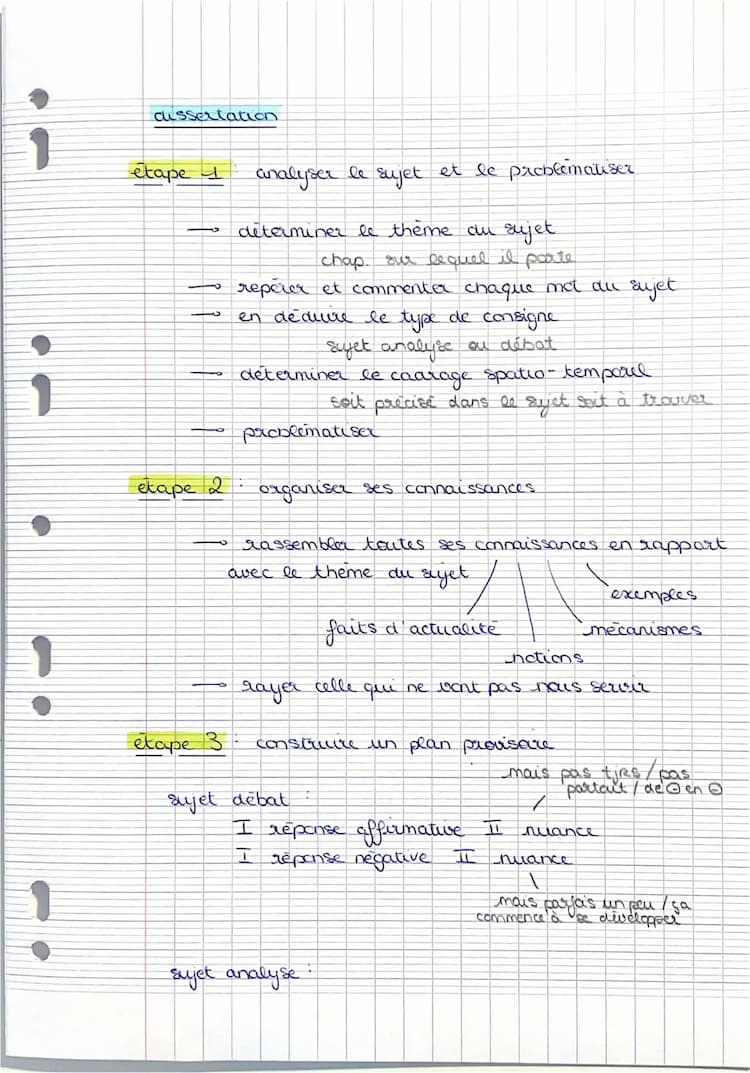 dissertation
étape 1 : analyser le sujet et le problématiser
→ déterminer le thème du sujet
chap. sur lequel il porte
→ repérer et commenter chaque mot du sujet
→ en déduire le type de consigne
sujet analyse ou débat
→ déterminer le cadrage spatio-temporel
soit précisé dans le sujet soit à trouver
→ problématiser
étape 2 : organiser ses connaissances
→ rassembler toutes ses connaissances en rapport
avec le thème du sujet
exemples
faits d'actualité
mécanismes
notions
→ rayer celle qui ne vont pas nous servir
étape 3 : construire un plan provisoire
mais pas tjrs / pas
partout / de ⊖ en ⊖
sujet débat :
I réponse affirmative II nuance
I réponse négative II nuance
mais parfois un peu / ça
commence à se développer
sujet analyse :